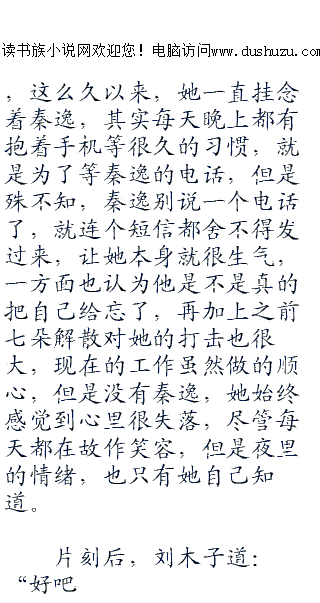 读书族小说网欢迎您！电脑访问www.dushuzu.com
，这么久以来，她一直挂念
着秦逸，其实每天晚上都有
抱着手机等很久的习惯，就
是为了等秦逸的电话，但是
殊不知，秦逸别说一个电话
了，就连个短信都舍不得发
过来，让她本身就很生气，
一方面也认为他是不是真的
把自己给忘了，再加上之前
七朵解散对她的打击也很
大，现在的工作虽然做的顺
心，但是没有秦逸，她始终
感觉到心里很失落，尽管每
天都在故作笑容，但是夜里
的情绪，也只有她自己知
道。
片刻后，刘木子道：
“好吧